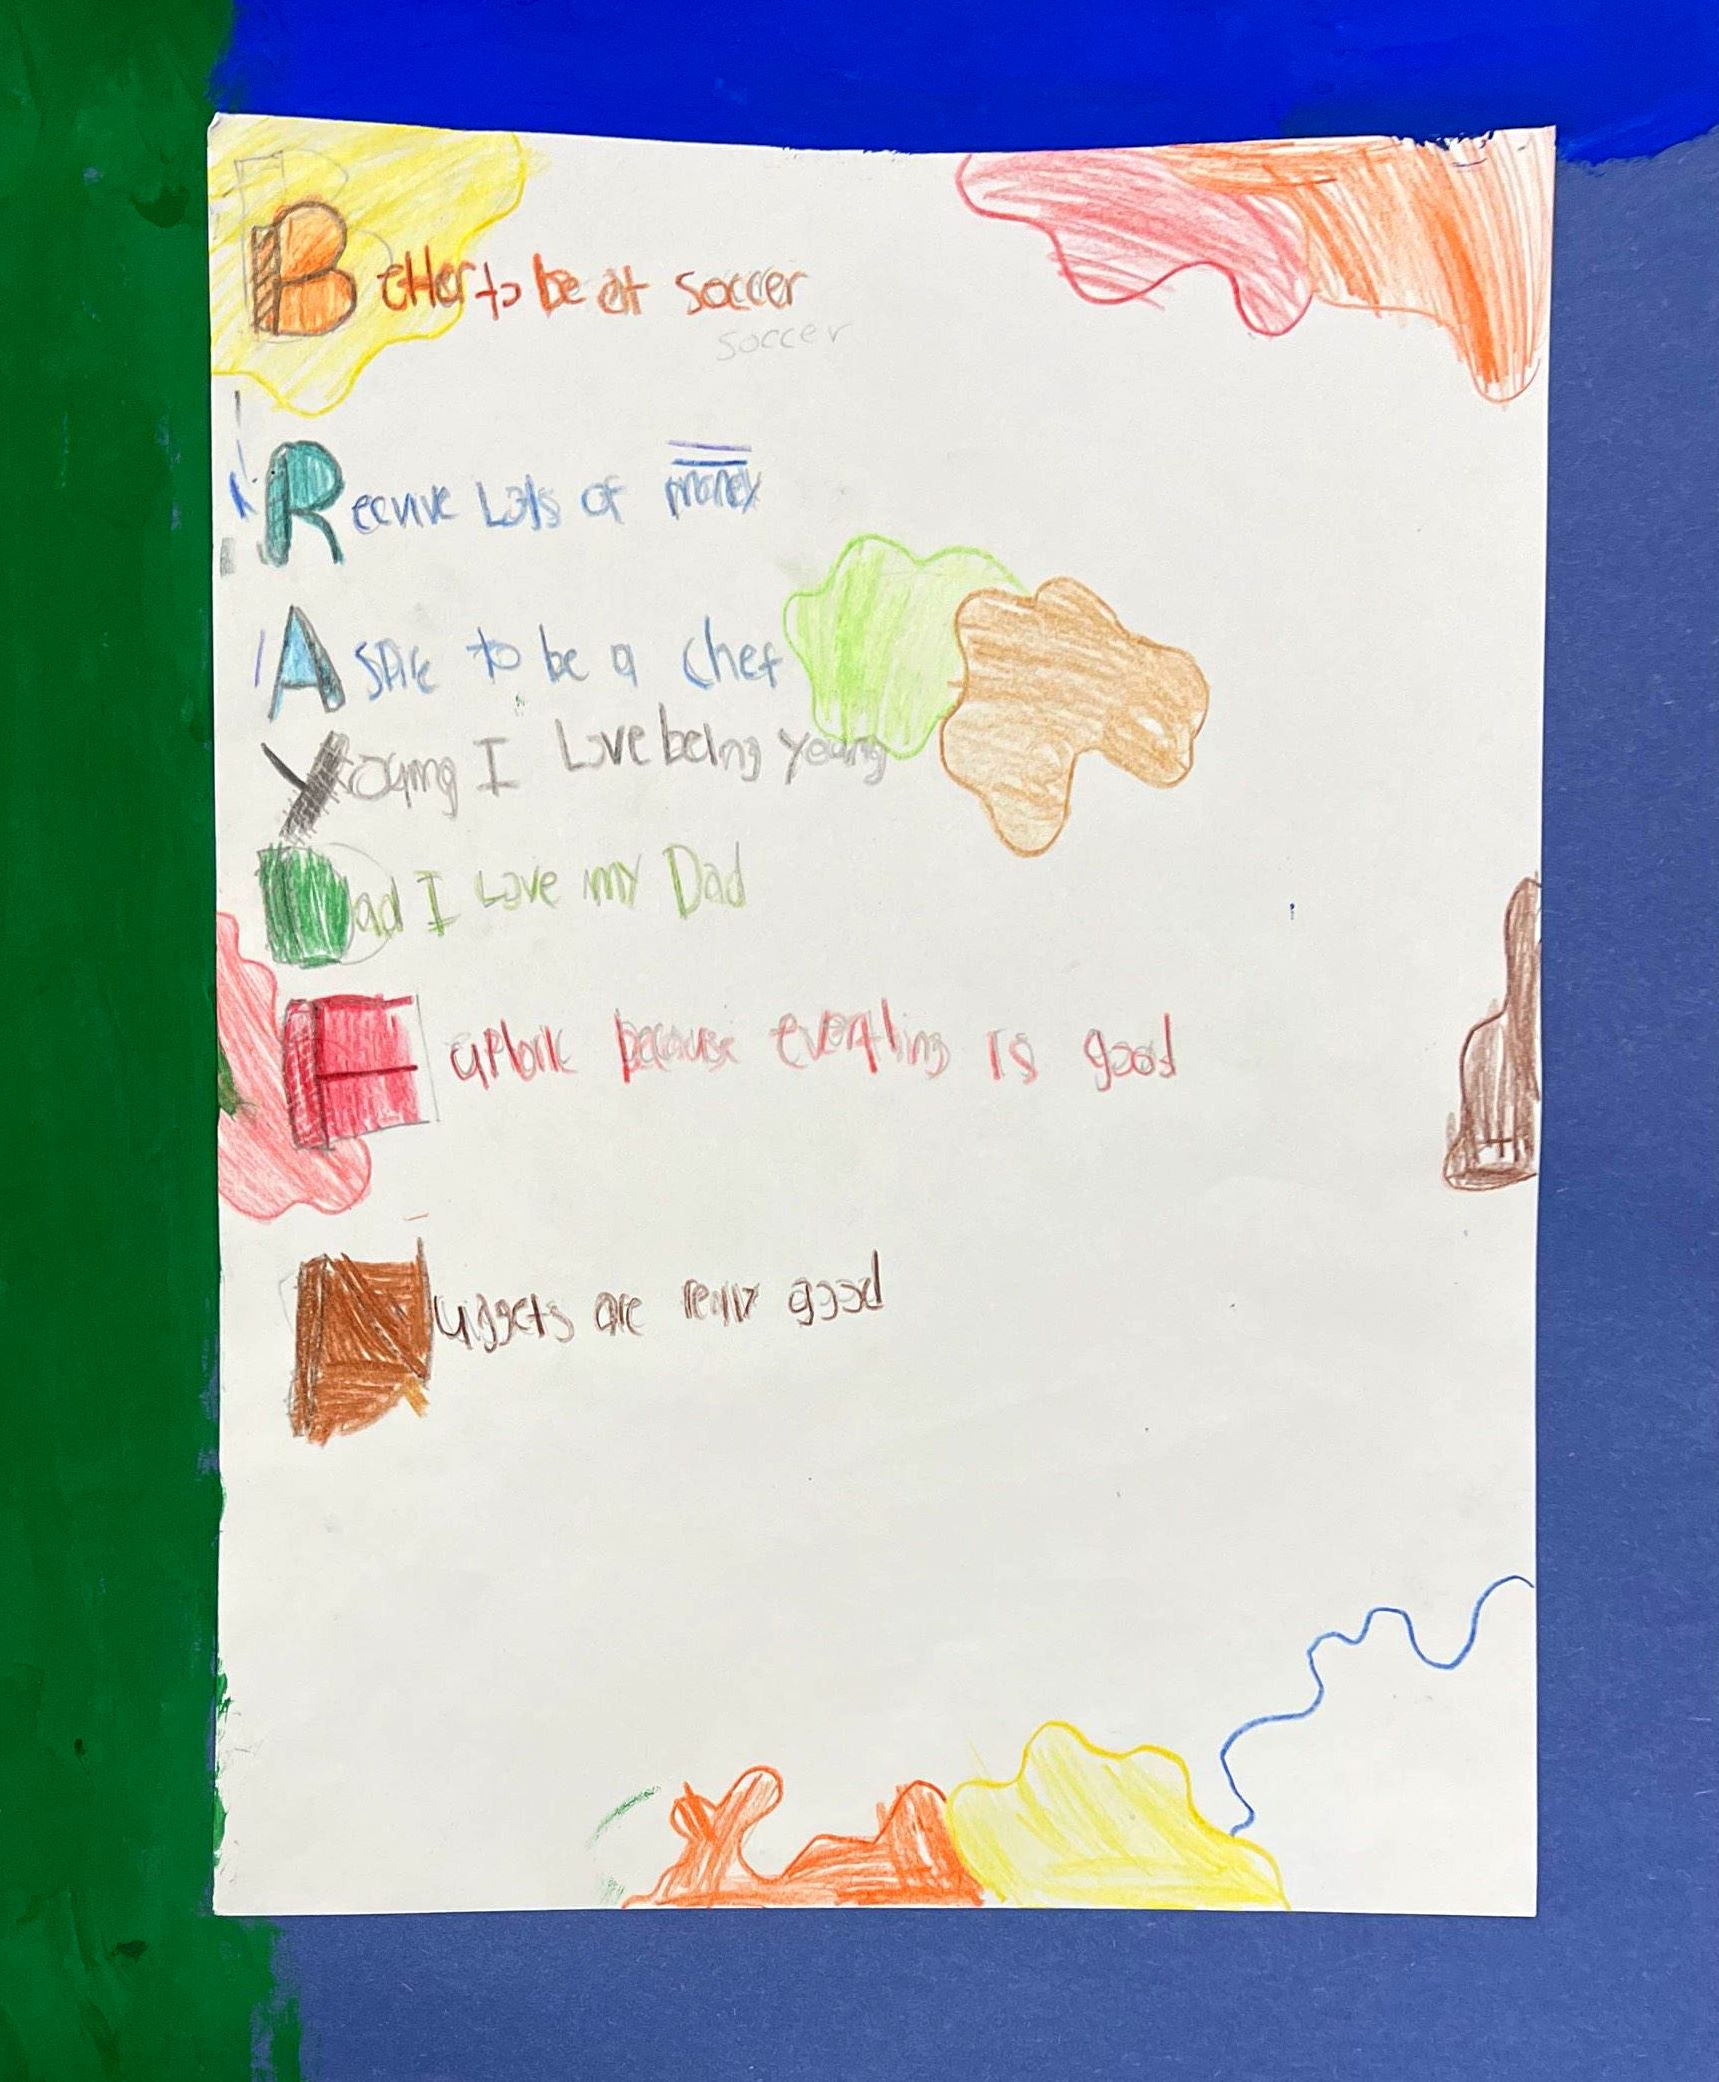 Better to be at soccer
soccer
Recvive Lots of money
Aspire to be a chef
Young I Love being young
Dad I Love my Dad
Euphoric because everthing is good
Nuggets are really good